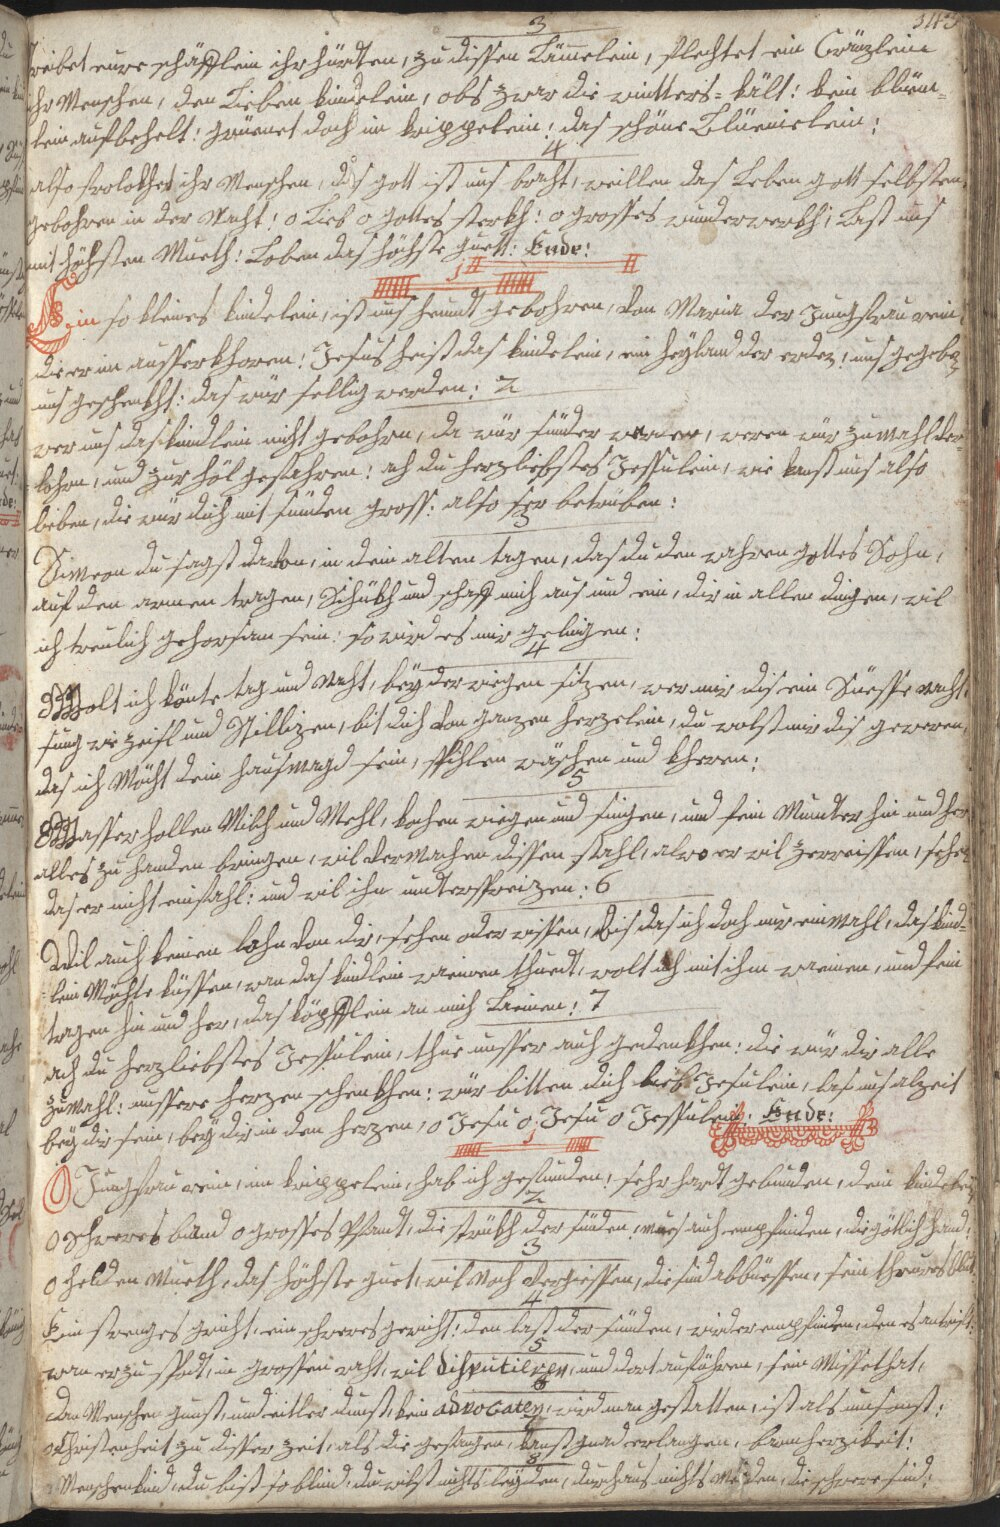 343
3
treibet eure schäfflein ihr hürdten, zu dissen Lämelein, flechtet ein Cränzlein
ihr Menschen, den Lieben kindelein, obs zwar die wintters-kält: kein blüem-
lein aufbehelt: grüenet doch im krippelein: das schöne Blüemelein:
4
also frolokhet ihr Menschen, das gott ist uns braht, weillen das Leben gott selbsten,
gebohren in der Nacht: o Lieb o gottes sterkh: o grosses wunderwerkh: Last uns
mit höhsten Mueth: Loben das höchste guett: Ende:
1
Ein so kleines kindelein, ist uns heundt gebohren, von Maria der Jungfrau rein,
die er im ausserkhoren: Jesus heist das kindelein, ein heyland der erden: uns gegeben
uns geschenkht: das wür sellig werden: 2
wer uns das kindlein nicht gebohrn, da wür sünder waren, weren wür zumahl ver-
lohrn, und zur höl gefahren: ach du herzliebstes Jessulein, wie kanst uns also
lieben, die wür dich mit sünden gross: also ser betrüben:
3
Simeon du sagst davon, in dein alten tagen, das du den wahren gottes Sohn,
auf den armen tragen, Schükh und schaff mich aus und ein, dir in allen dingen, wil
ich treulich gehorsam sein: so wird es mir gelingen:
4
Wolt ich könte tag und Naht, bey der wiegen sizen, wer mir dis ein Süesse nacht,
sung wie zeisl und Stillizen, bit dich von ganzen herzelein, du wolst mir dis geweren,
das ich Möcht dein hausmagd sein, spihlen wäschen und kheren:
5
Wasser hollen Milch und Mehl, kochen wiegen und singen, und sein Munter hin und her,
alles zu handen bringen, wil vermachen dissen stahl, alwo er wil zerreissen, sehen
das er nicht einfahl: und wil ihn unterspreizen: 6
Wil auch keinen lohn von dir, sehen oder wissen, Bis das ich doch nur einmahl, das kind-
lein Möchte küssen, wan das kindlein weinen thuedt, wolt ich mit ihm weinen, und sein
tragen hin und her, das köpfflein an mich Leinen: 7
ach du herzliebstes Jessulein, thue unsser auch gedenkhen: die wür dir alle
zumahl: unssere herzen schenkhen: wür bitten dich lieb Jesulein, las uns alzeit
bey dir sein, bey dir in den herzen, o Jesu o Jesu o Jessulein: Ende:
1
O Jungfrau rein, im krippelein, hab ich gefunden: sehr hardt gebunden, dein kindelein
2
o schweres band o grosses Pfandt, die strükh der sünden, mues auch empfinden, die götlich hand:
3
o helden Mueth, das höchste guet, wil Noch vergiessen, die sünd abbüessen, sein theures blut
4
Ein strenges gricht, ein schweres gewicht: den last der sünden, wird er empfinden, den es antrift:
5
wan er zu spat, in grossen raht, wil disputieren, und dort anführen, sein Missethat,
6
Dan Menschen gunst, und eitler dunst, kein advocaten, wird man gestatten, ist als umsonst:
7
o Christenheit zu disser zeit, als die gefangen, kanst gnad erlangen, barmherzikeit:
8
Menschenkind, du bist so blind, du wilst nichts leyden, durchaus nichts Meiden, die schwere sünd: